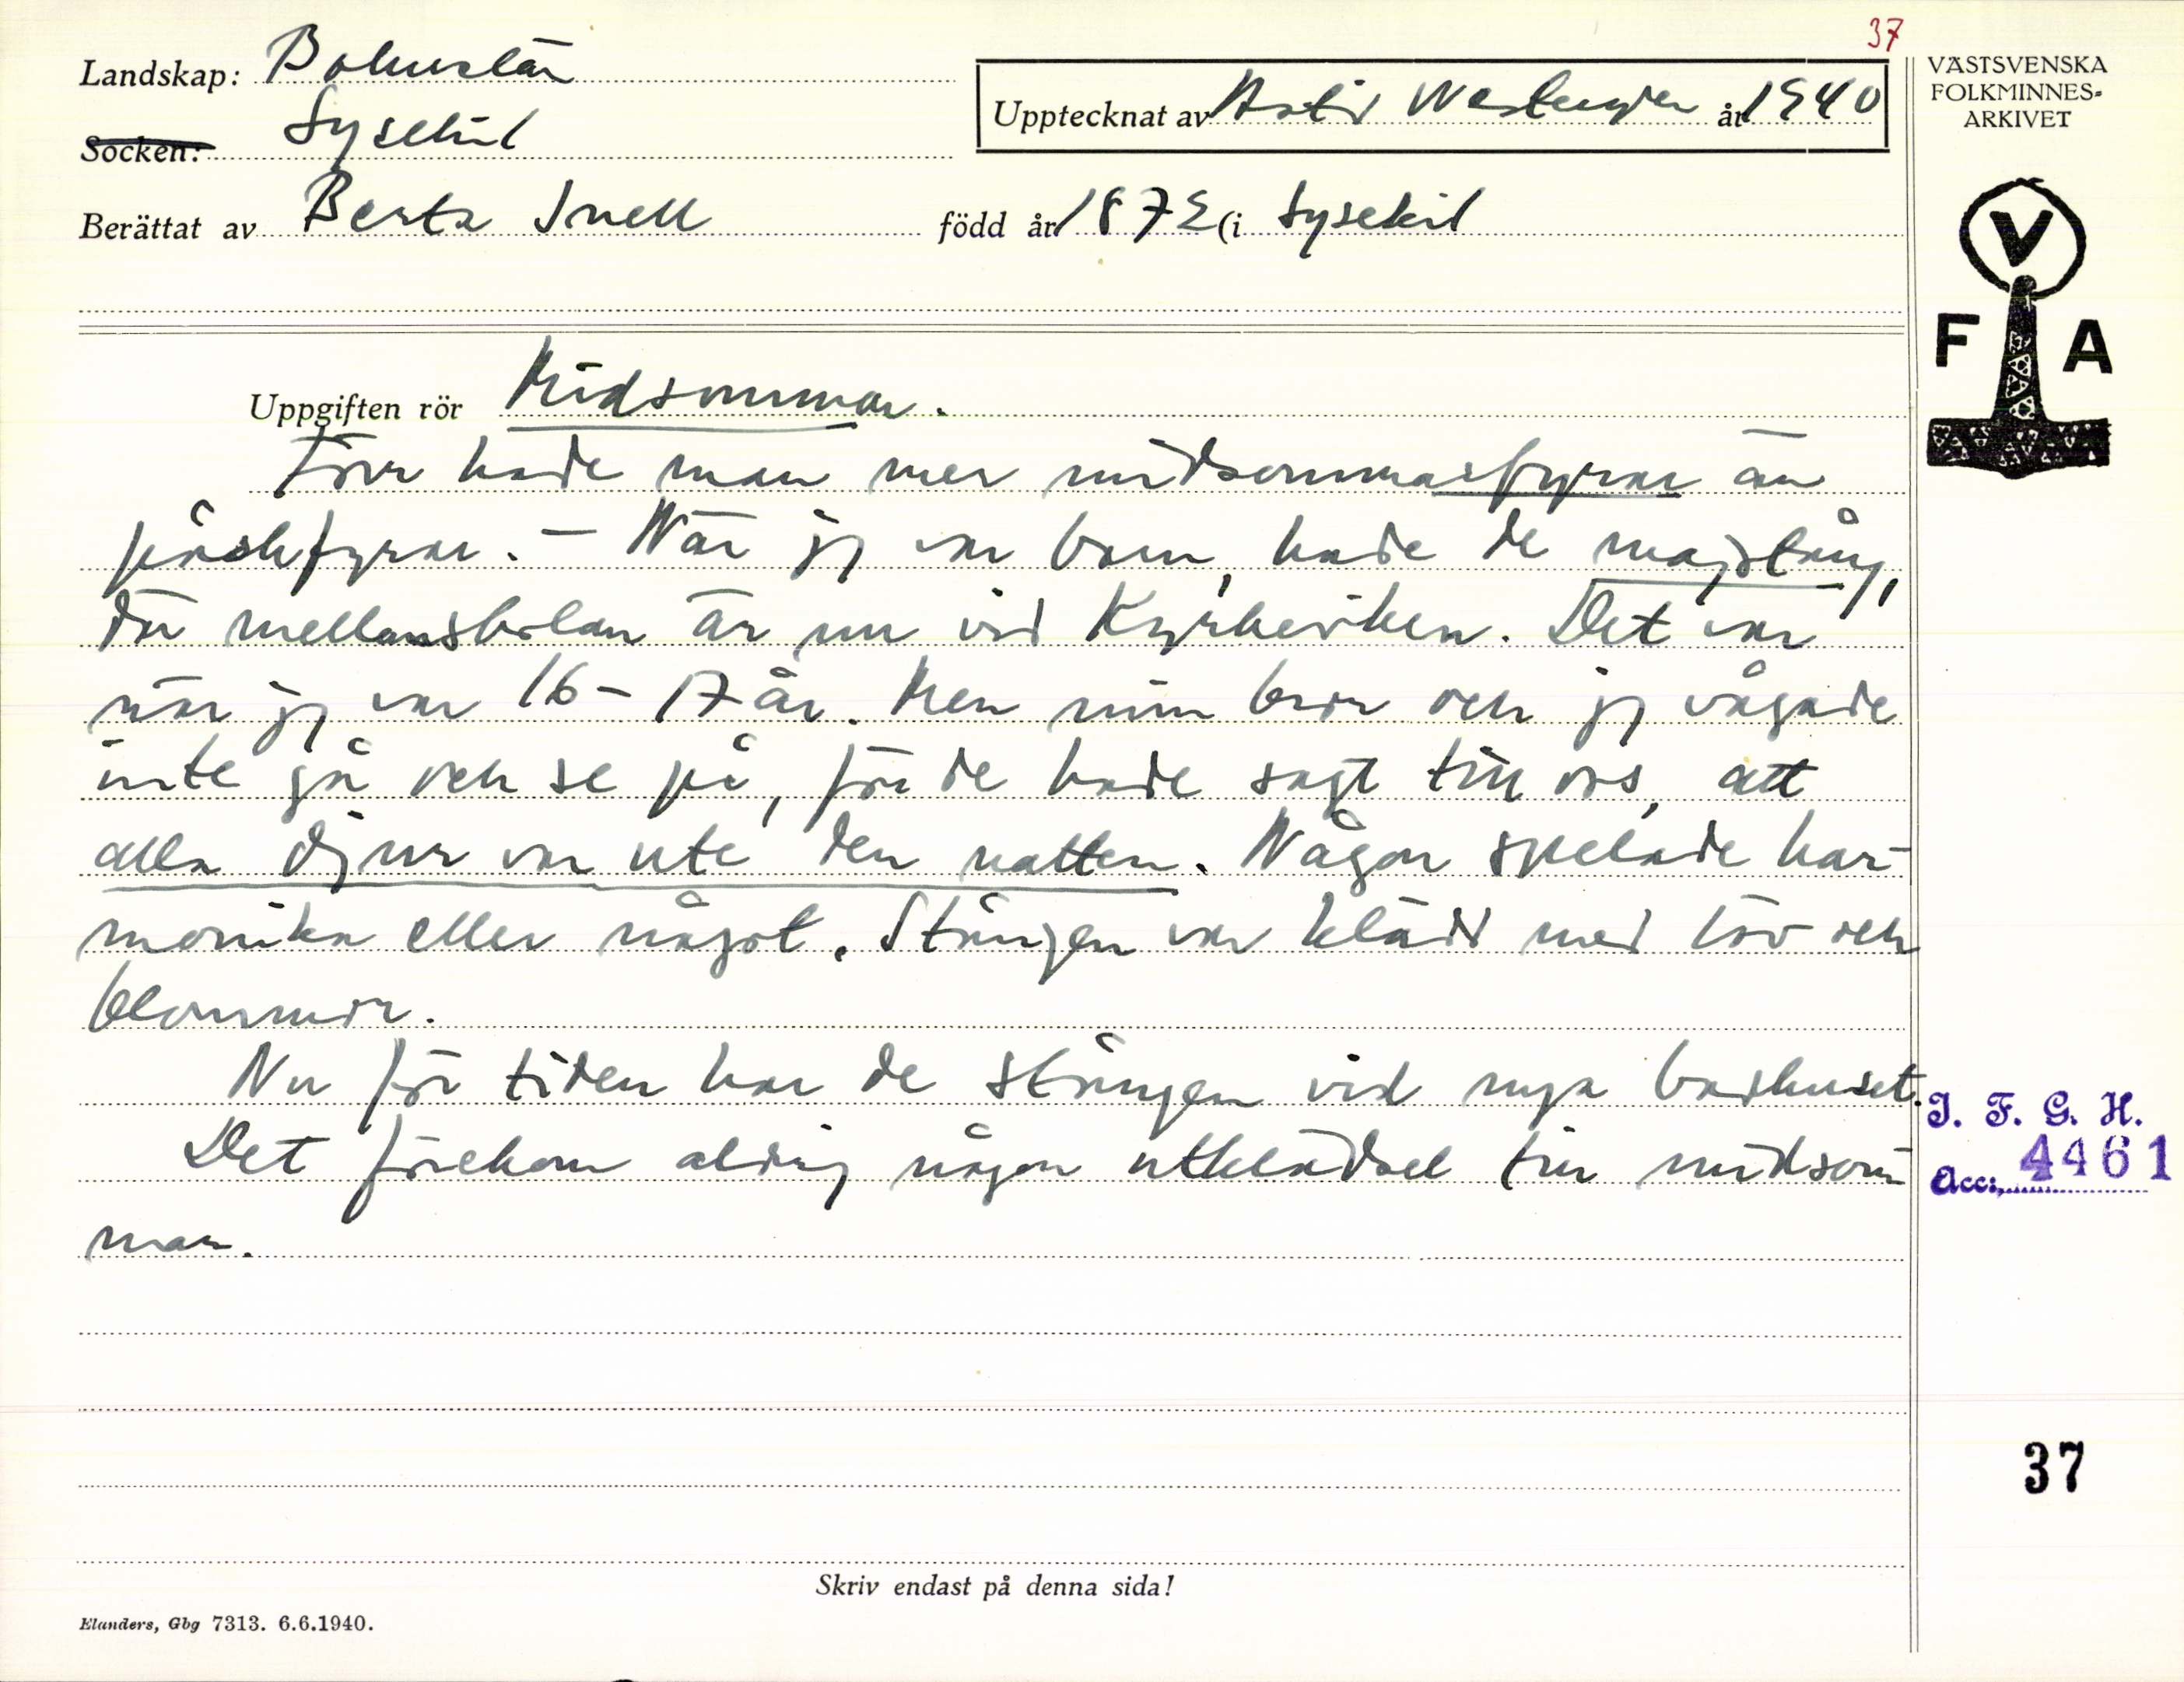 37
Landskap: Bohuslän
VÄSTSVENSKA
FOLKMINNES-
ARKIVET
Upptecknat av Astrid år 1940
Socken: Lysekil
Berättat av Berta Snell född år 1872 (i Lysekil
V
F A
Uppgiften rör Midsommar.
Förr hade man mer midsommarsfyrar än
påskfyrar. – När jg var barn, hade de majstång,
där mellanskolan är nu vid Kyrkeviken. Det var
när jg var 16 – 17 år. Men min bror och jg vågade
inte gå och se på, för de hade sagt till oss, att
alla djur var ute den natten. Någon spelade har-
monika eller något. Stången var klädd med löv och
blommor.
Nu för tiden har de stången vid nya badhuset.
Det förekom aldrig någon utklädsel till midsom
mar.
I. F. G. H.
Acc: 4461
37
Skriv endast på denna sida!
Elanders, Gbg 7313. 6.6.1940.